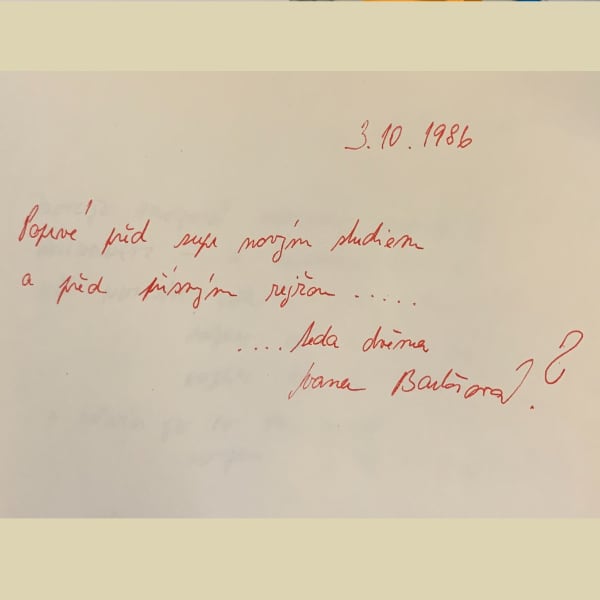 3.10.1986
Poprvé před supr novým studiem
a před přísným rejžou .....
.... teda dvěma
Ivana Bartošová. ?